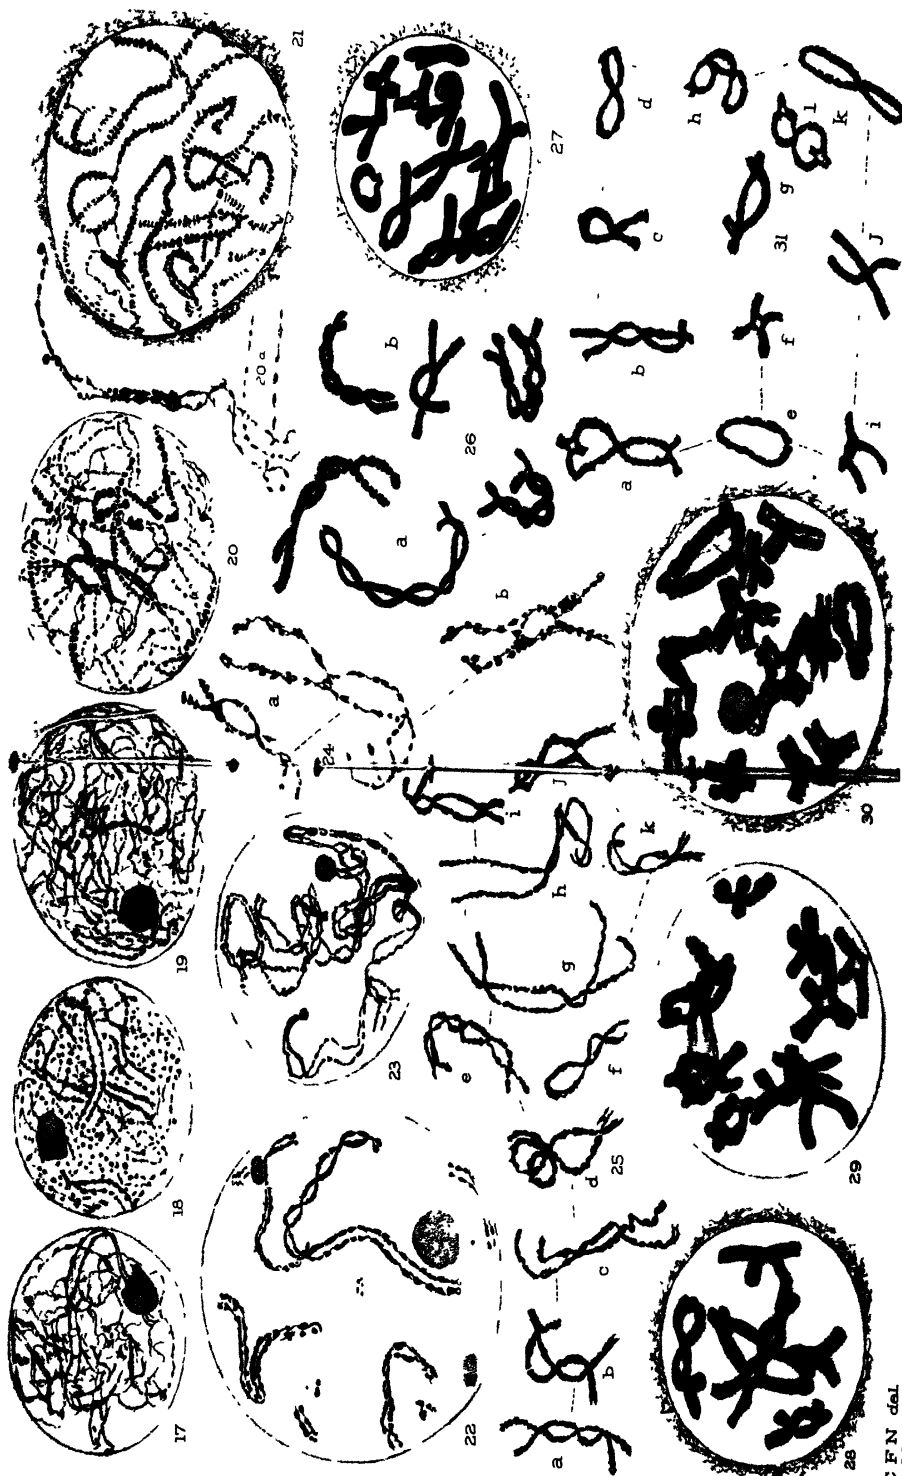 17 18 19 20 21
20a
22 23 24 a b 26 a b 27
a b c d 25 e f g h i J k
a b c d
e f 31 g h
i J k l
28 29 30
C F N del